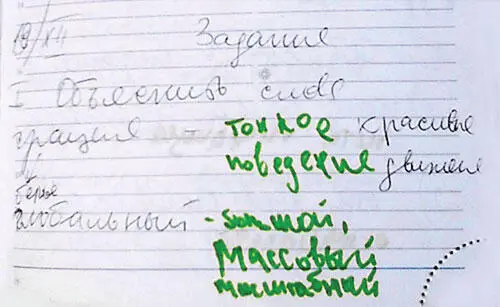 19/XII Задание
I Объяснить слова
грация - тонкое красивое
поведение движение
глобальный - большой,
массовый
масштабный